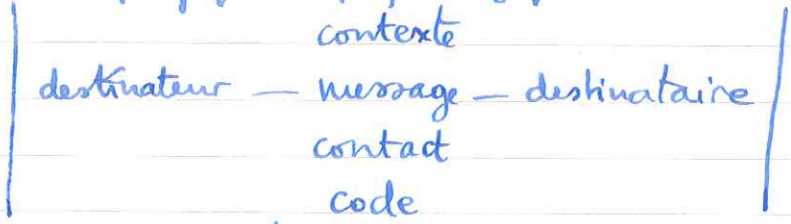 contexte
destinateur — message — destinataire
contact
code